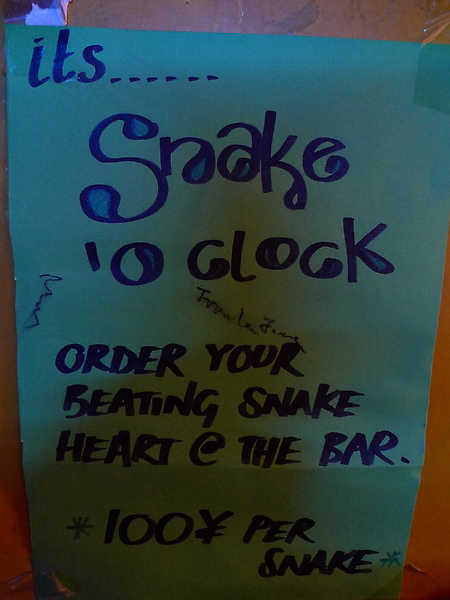 its......
Snake
'O CLOCK
ORDER YOUR
BEATING SNAKE
HEART @ THE BAR.
*100¥ PER
SNAKE*